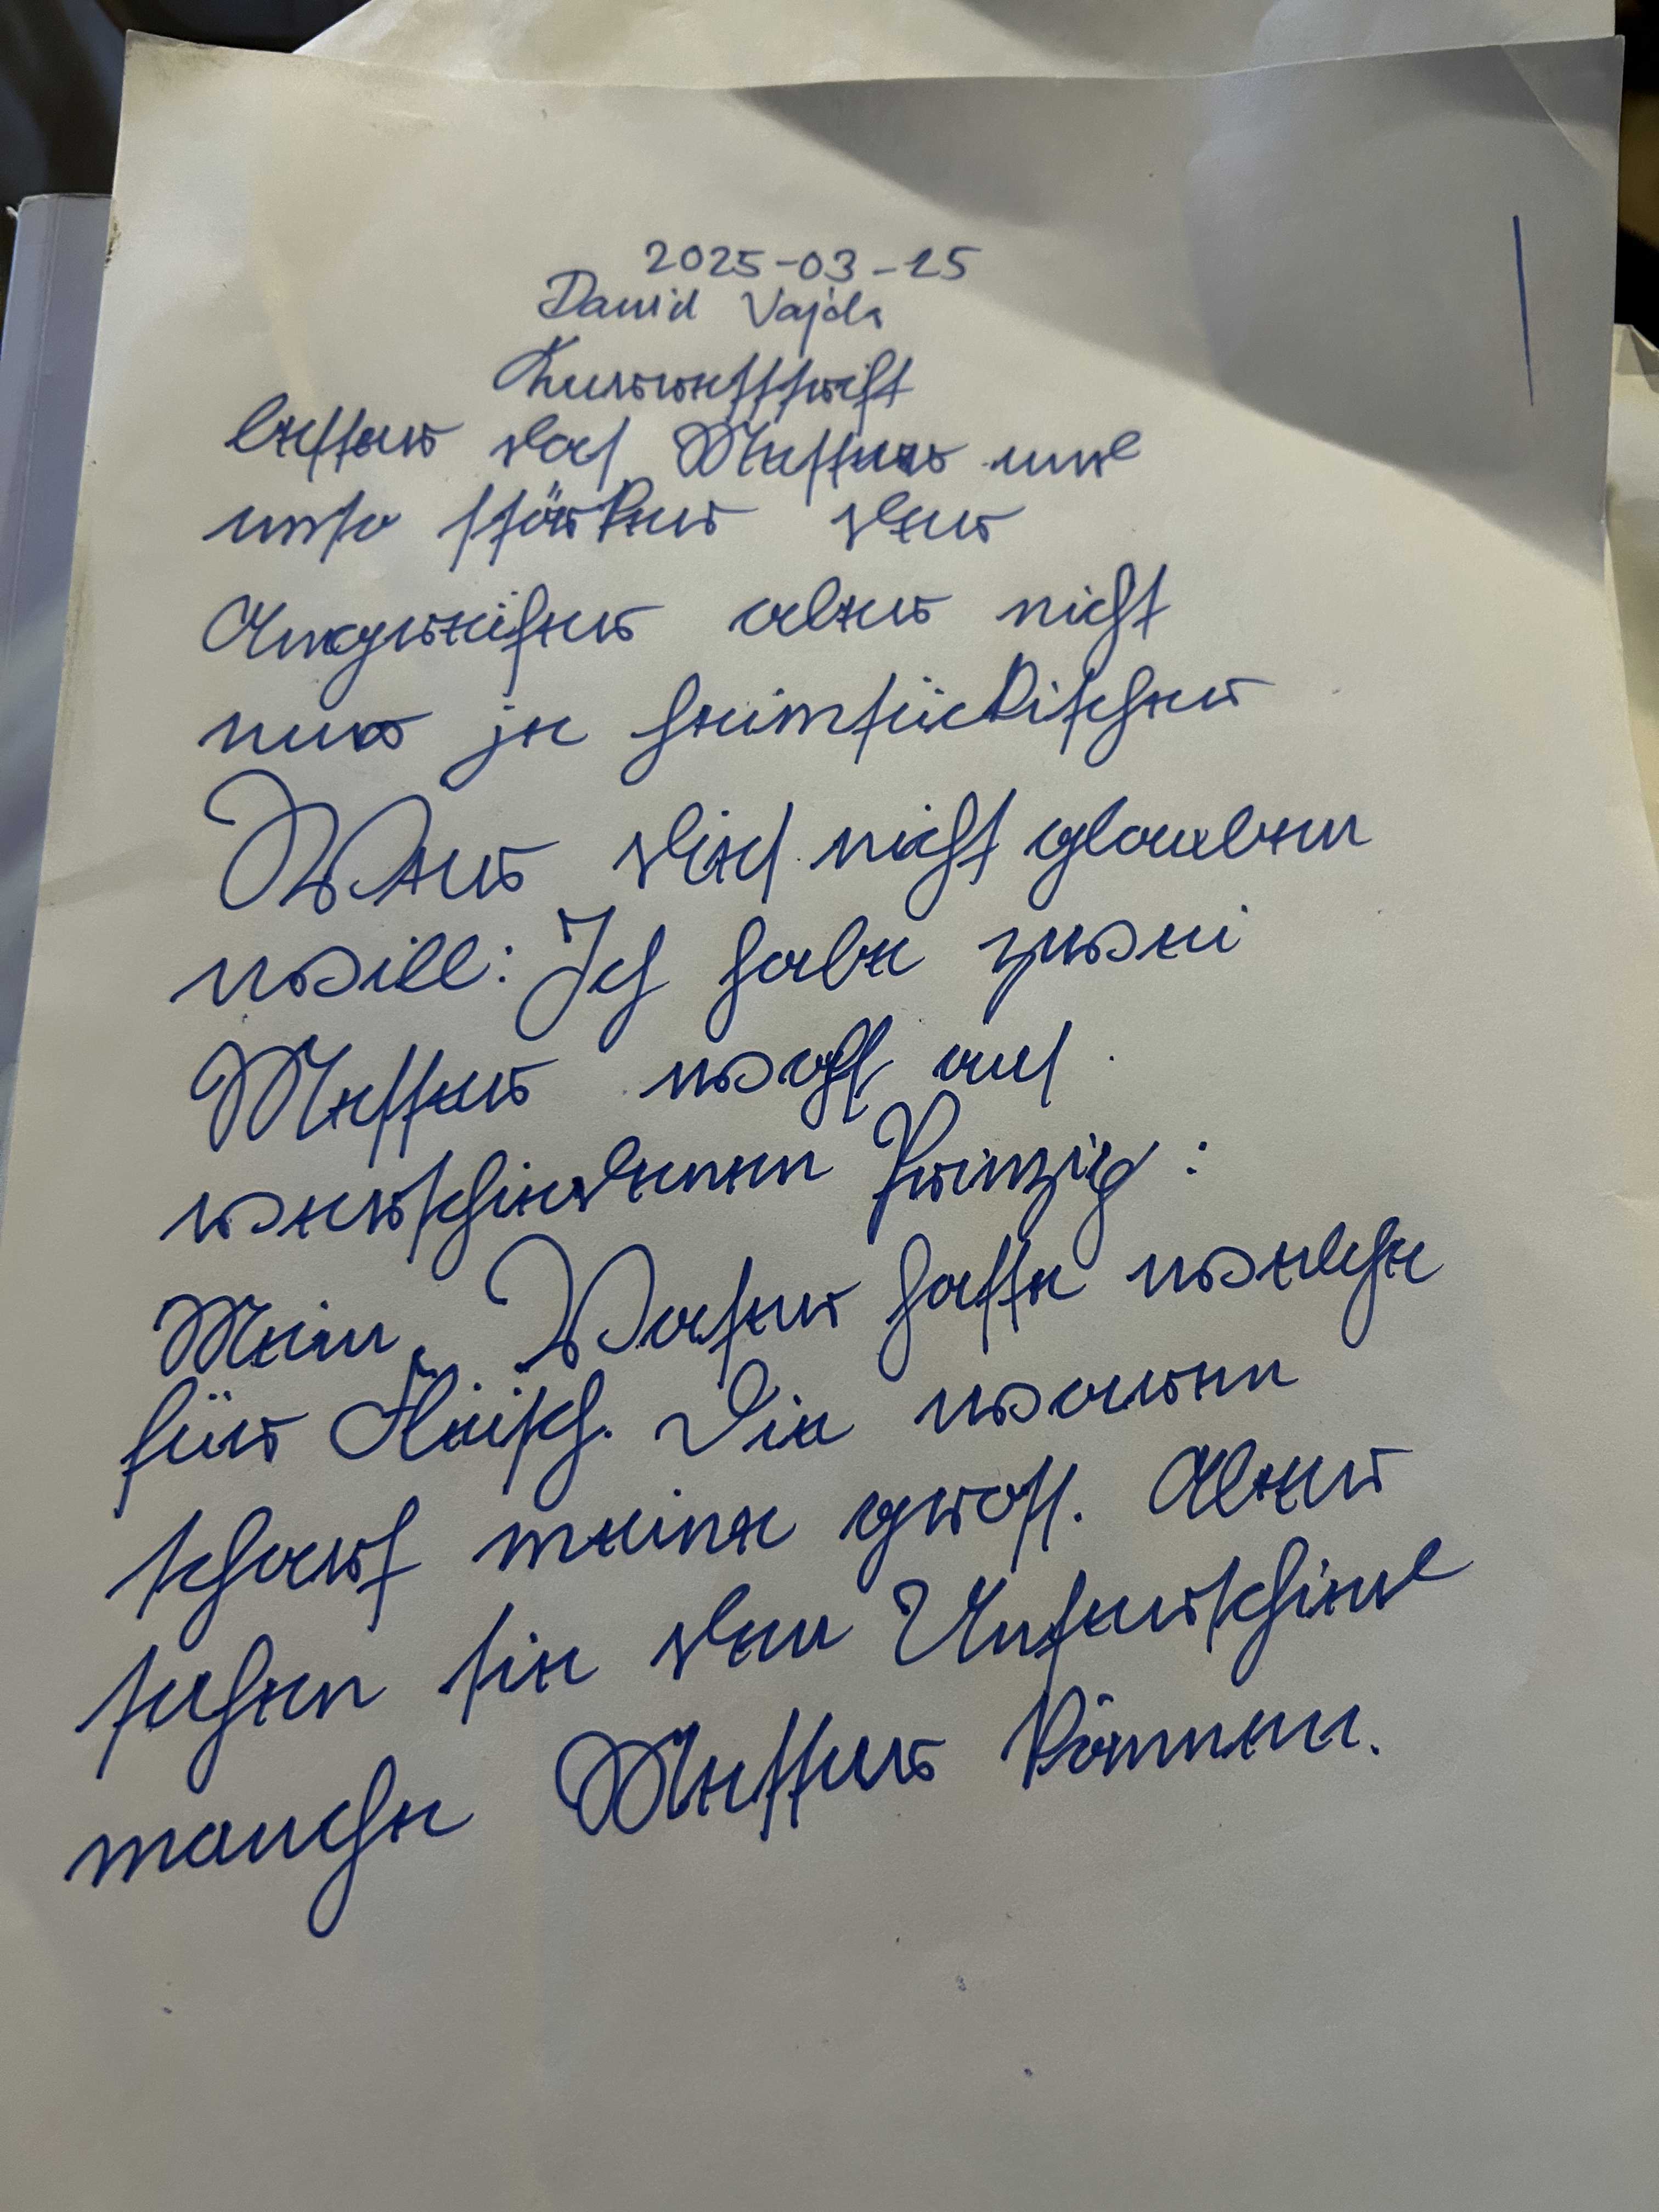 2025-03-15
David Vajda
Kurrentschrift
besser das Messer und
umso stärker der
Angreifer aber nicht
nur je heimtückischer
Wer dies nicht glauben
will: Ich habe zwei
Messer wohl aus
verschiedenen Prinzip:
Mein Vater hatte welche
für Fleisch. Die waren
scharf meine groß. Aber
sehen sie den Unterschied
manche Messer können.